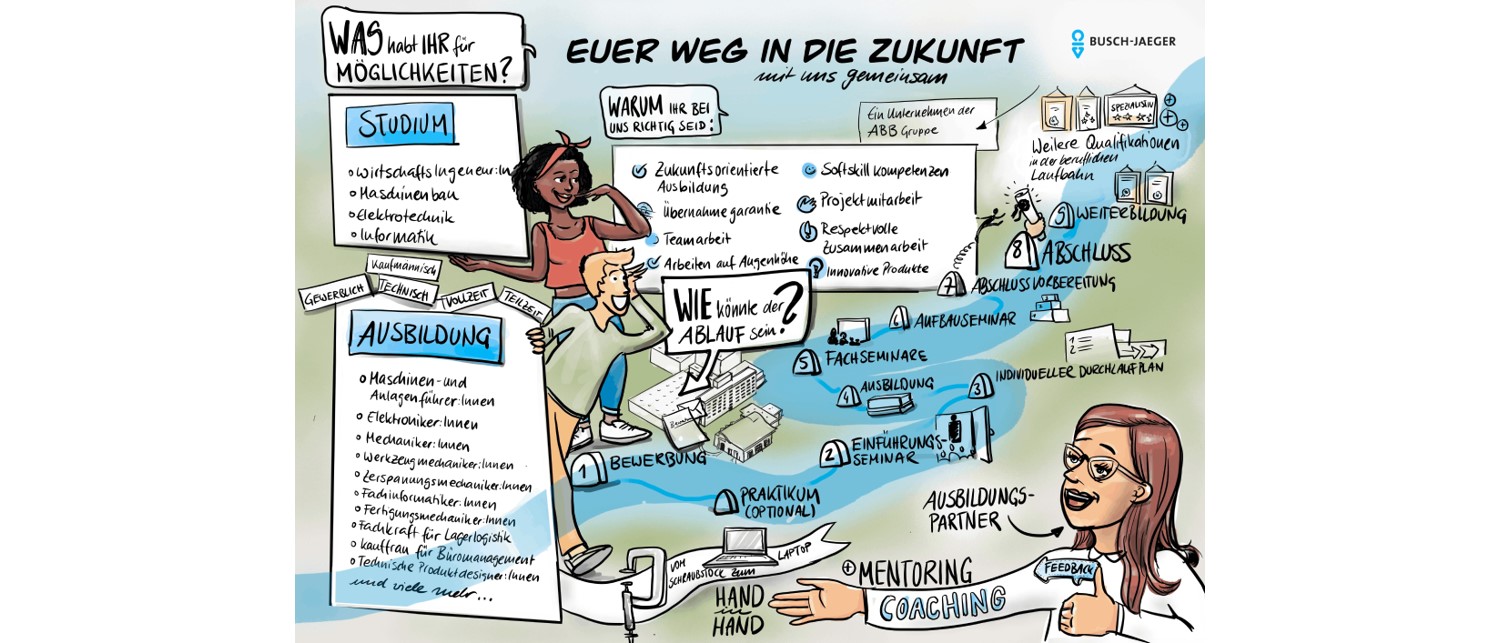 WAS habt IHR für
MÖGLICHKEITEN?
EUER WEG IN DIE ZUKUNFT
mit uns gemeinsam
BUSCH-JAEGER
STUDIUM
Wirtschaftsingeneur:In
Maschinenbau
Elektrotechnik
Informatik
WARUM IHR BEI
UNS RICHTIG SEID:
Ein Unternehmen der
ABB Gruppe
Zukunftsorientierte
Ausbildung
Übernahme garantie
Teamarbeit
Arbeiten auf Augenhöhe
Softskill Kompetenzen
Projektmitarbeit
Respektvolle
Zusammenarbeit
Innovative Produkte
SPEZIALIST:IN
Weilere Qualifikationen
in der beruflichen
Laufbahn
GEWERBLICH
Kaufmännisch
TECHNISCH
VOLLZEIT
TEILZEIT
AUSBILDUNG
Maschinen- und
Anlagenführer:Innen
Elektroniker:Innen
Mechaniker:Innen
Werkzeugmechaniker:Innen
Zerspanungsmechaniker:Innen
Fachinformatiker:Innen
Fertigungsmechaniker:Innen
Fachkraft für Lagerlogistik
Kauffrau für Büromanagement
Technische Produktdesigner:Innen
und viele mehr...
WIE könnte der
ABLAUF sein?
1 BEWERBUNG
PRAKTIKUM
(OPTIONAL)
2 EINFÜHRUNGS-
SEMINAR
3 INDIVIDUELLER DURCHLAUFPLAN
1
2
4 AUSBILDUNG
5 FACHSEMINARE
6 AUFBAUSEMINAR
7 ABSCHLUSSVORBEREITUNG
8 ABSCHLUSS
9 WEITERBILDUNG
VOM
SCHRAUBSTOCK ZUM
LAPTOP
HAND
in
HAND
+ MENTORING
COACHING
AUSBILDUNGS-
PARTNER
FEEDBACK